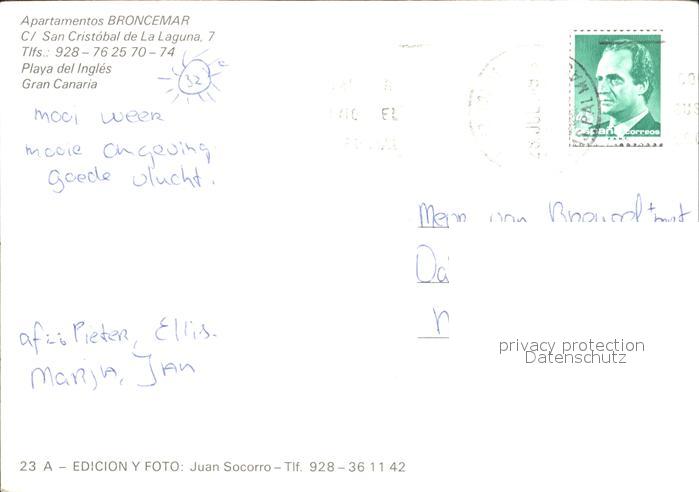 Apartamentos BRONCEMAR
C/ San Cristóbal de La Laguna, 7
Tlfs.: 928 – 76 25 70 – 74
Playa del Inglés
Gran Canaria
32°
mooi weer
mooie omgeving
goede vlucht.
españa correos
PALMAS
JUL
EL
van
afz: Pieter, Ellis.
Marija, Jan
privacy protection
Datenschutz
23 A – EDICION Y FOTO: Juan Socorro – Tlf. 928 – 36 11 42